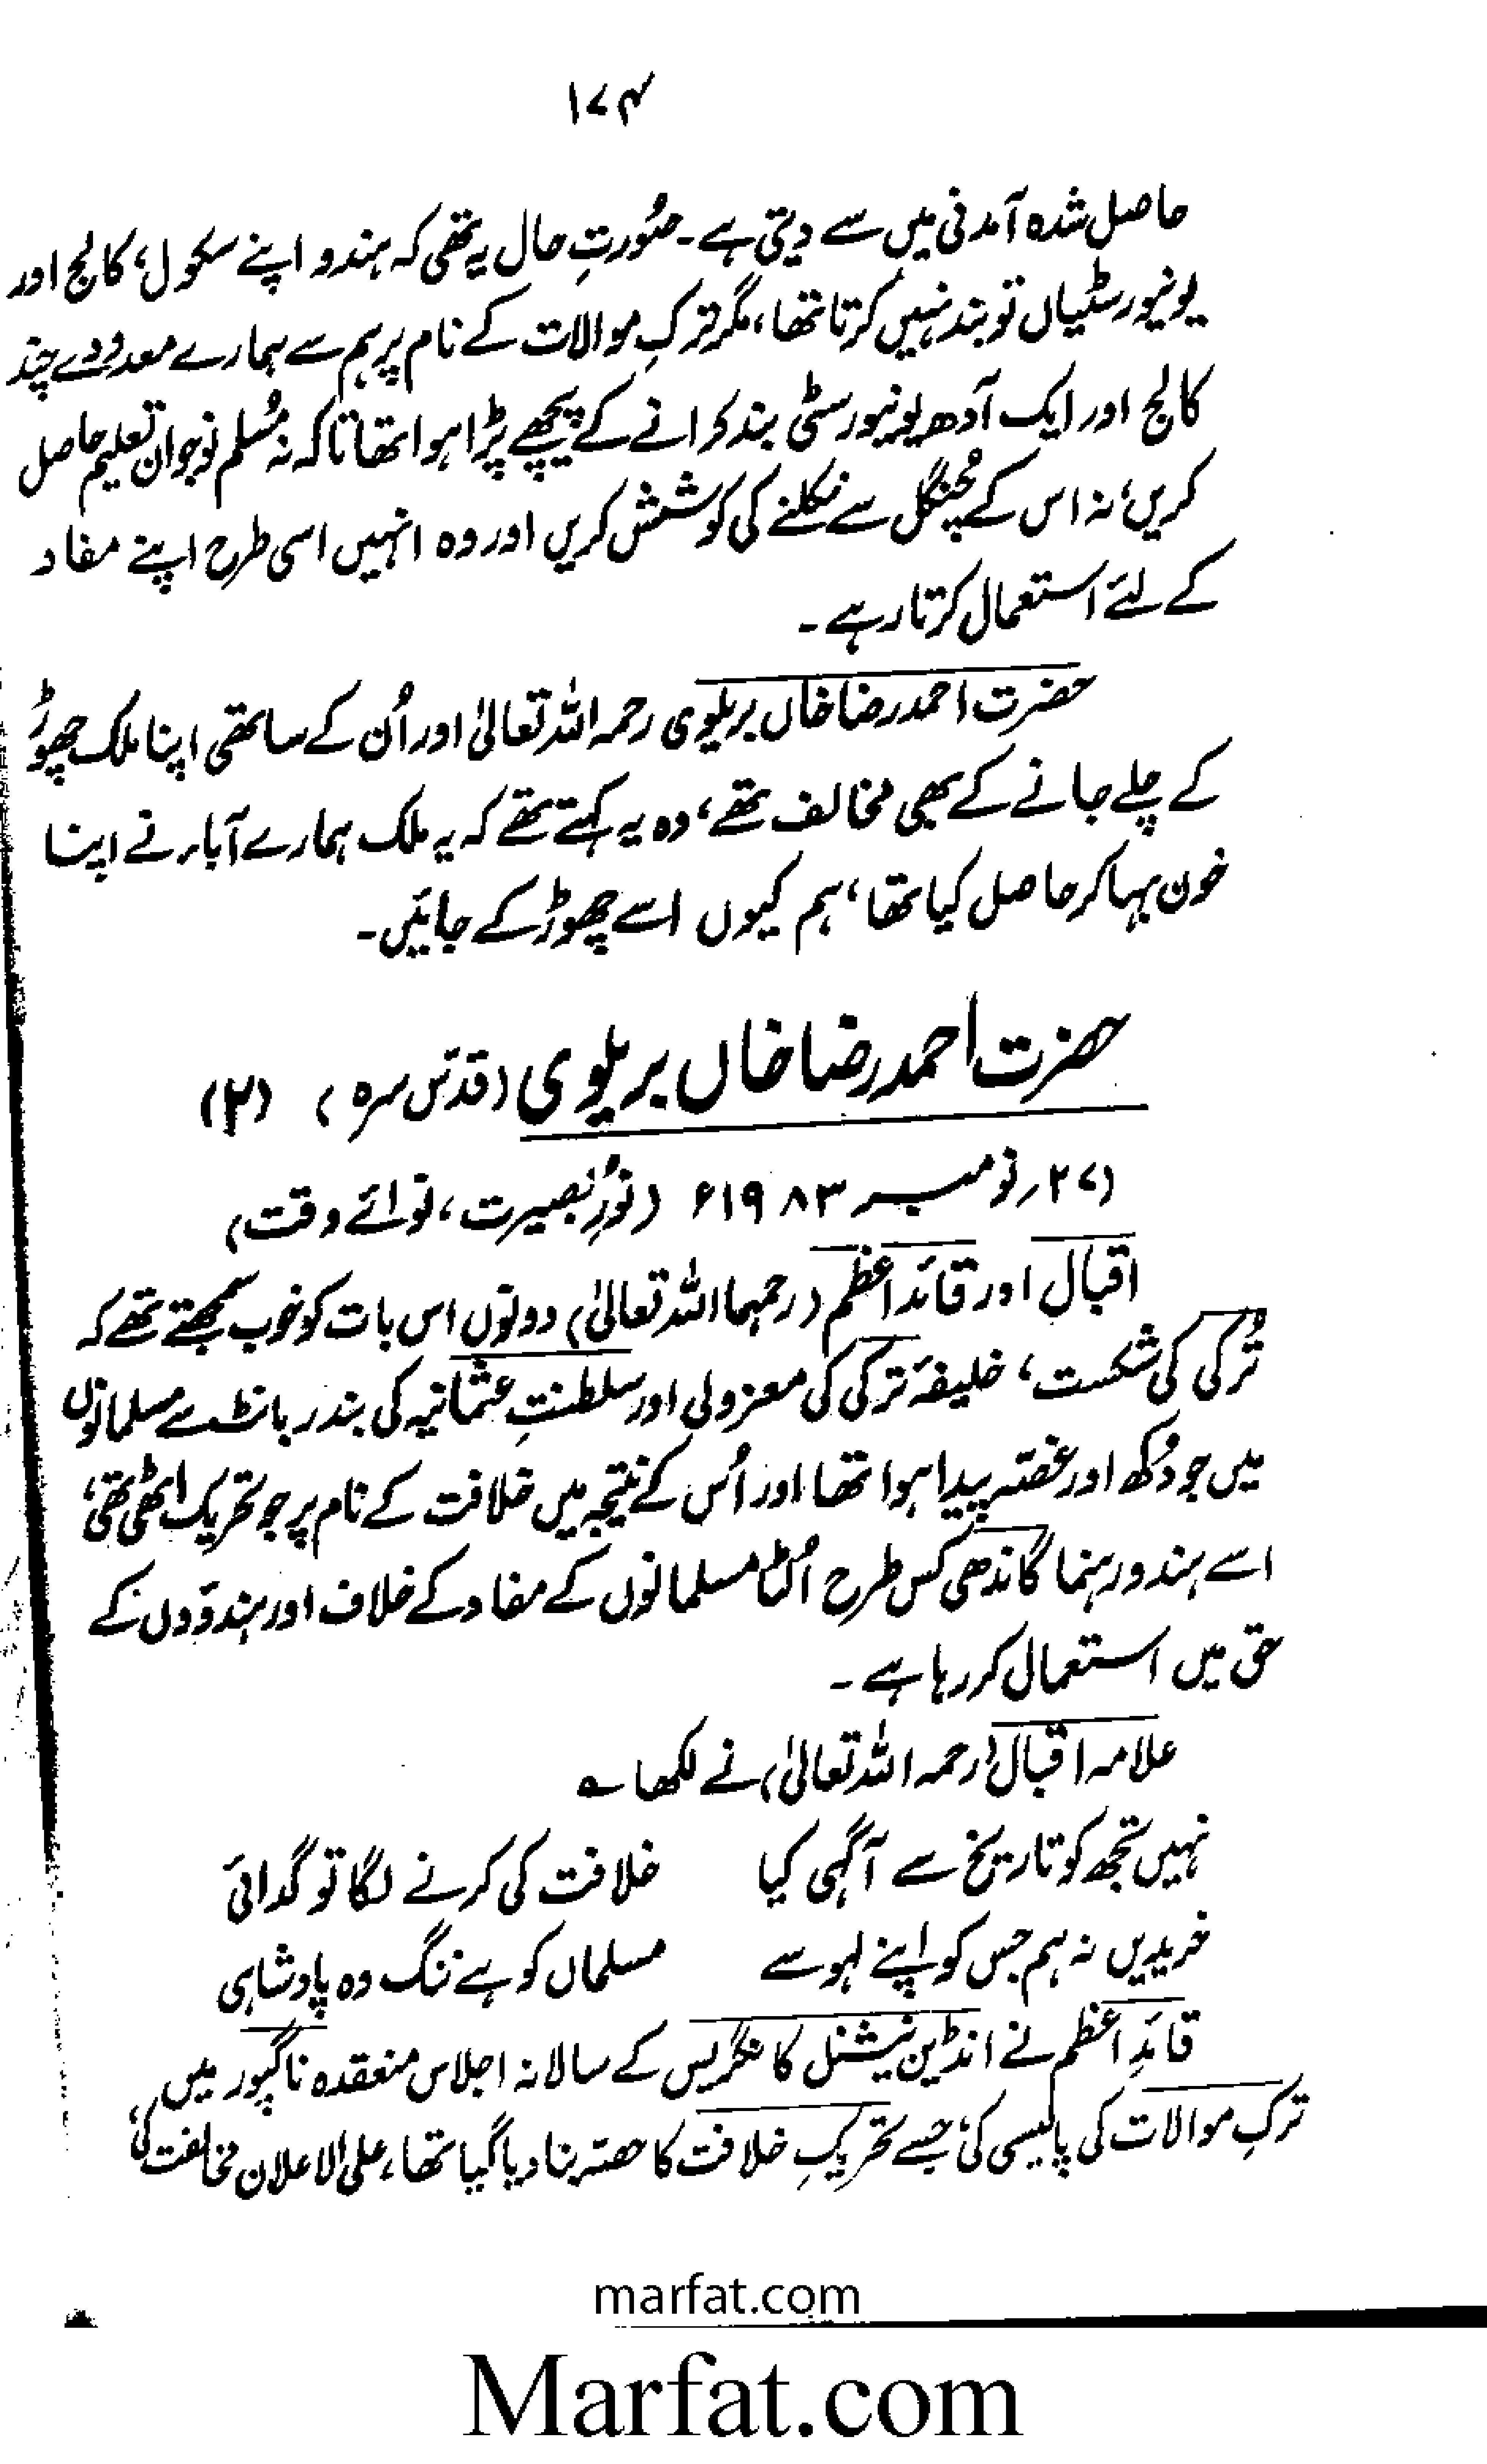 ۱۷۴
حاصل شدہ آمدنی میں سے دیتی ہے۔ صُورتِ حال یہ تھی کہ ہندو اپنے سکول، کالج اور
یونیورسٹیاں تو بند نہیں کرتا تھا، مگر ترکِ موالات کے نام پر ہم سے ہمارے معدودے چند
کالج اور ایک آدھ یونیورسٹی بند کرانے کے پیچھے پڑا ہوا تھا تاکہ نہ مُسلم نوجوان تعلیم حاصل
کریں، نہ اس کے چُنگل سے نکلنے کی کوشش کریں اور وہ انہیں اسی طرح اپنے مفاد
کے لئے استعمال کرتا رہے۔
حضرت احمد رضا خاں بریلوی رحمہ اللہ تعالیٰ اور اُن کے ساتھی اپنا ملک چھوڑ
کے چلے جانے کے بھی مخالف تھے، وہ یہ کہتے تھے کہ یہ ملک ہمارے آباء نے اپنا
خون بہا کر حاصل کیا تھا، ہم کیوں اسے چھوڑ کے جائیں۔
حضرت احمد رضا خاں بریلوی (قدّس سرہ) (۲)
(۲۷؍ نومبر ۱۹۸۳ء (نُورِ بصیرت، نوائے وقت)
اقبال اور قائد اعظم (رحمہما اللہ تعالیٰ) دونوں اس بات کو خوب سمجھتے تھے کہ
تُرکی کی شکست، خلیفۂ ترکی کی معزولی اور سلطنتِ عثمانیہ کی بندر بانٹ سے مسلمانوں
میں جو دُکھ اور غصّہ پیدا ہوا تھا اور اُس کے نتیجہ میں خلافت کے نام پر جو تحریک اٹھی تھی،
اسے ہندو رہنما گاندھی کس طرح اُلٹ مسلمانوں کے مفاد کے خلاف اور ہندوؤں کے
حق میں استعمال کر رہا ہے۔
علامہ اقبال (رحمہ اللہ تعالیٰ) نے لکھا ؎
نہیں تجھ کو تاریخ سے آگہی کیا خلافت کی کرنے لگا تو گدائی
خریدیں نہ ہم جس کو اپنے لہو سے مسلماں کو ہے ننگ وہ پادشاہی
قائدِ اعظم نے انڈین نیشنل کانگریس کے سالانہ اجلاس منعقدہ ناگپور میں
ترکِ موالات کی پالیسی کی، جسے تحریکِ خلافت کا حصّہ بنا دیا گیا تھا، علی الاعلان مخالفت کی،
marfat.com
Marfat.com